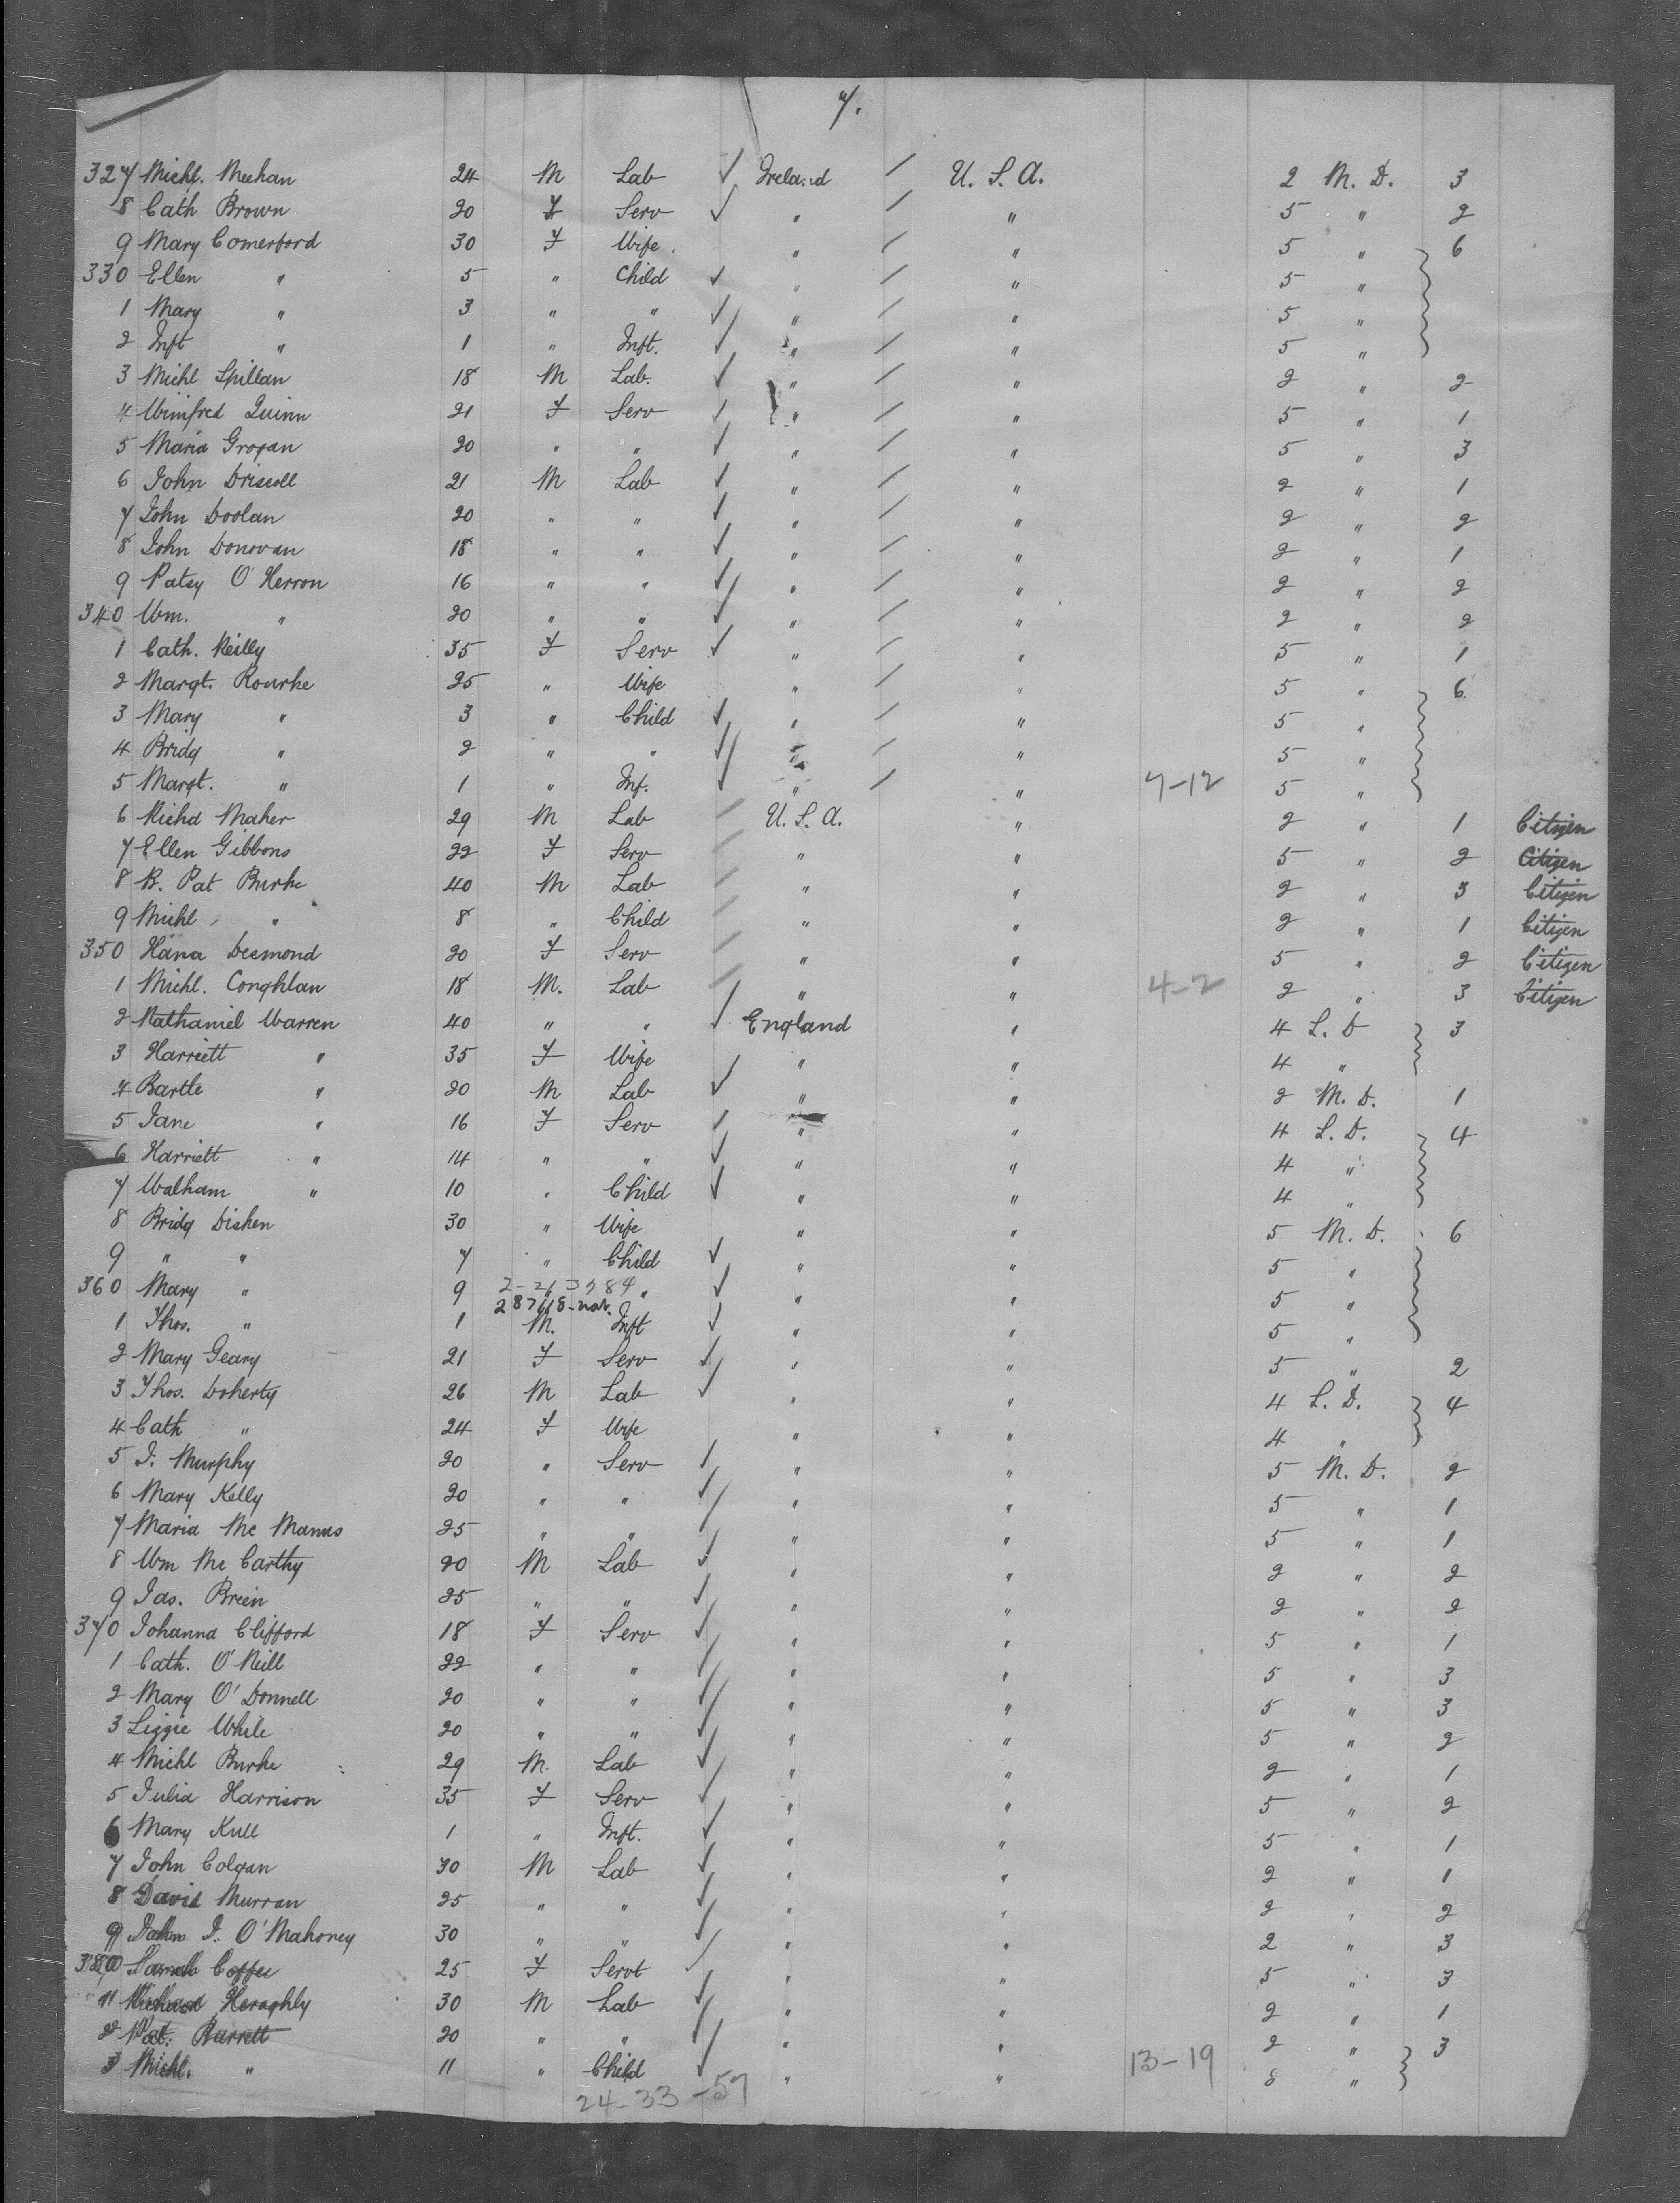 7.
327 Michl. Meehan 24 M Lab ✓ Ireland / U. S. A. 2 M. D. 3
8 Cath Brown 20 F Serv ✓ " / " 5 " 2
9 Mary Comerford 30 F Wife " / " 5 " 6
330 Ellen " 5 " Child ✓ " / " 5 "
1 Mary " 3 " " ✓ " / " 5 "
2 Inft " 1 " Inft. ✓ " / " 5 "
3 Michl Spillan 18 M Lab. ✓ " / " 2 " 2
4 Winifred Quinn 21 F Serv ✓ " / " 5 " 1
5 Maria Grogan 20 " " ✓ " / " 5 " 3
6 John Driscoll 21 M Lab ✓ " / " 2 " 1
7 John Doolan 20 " " ✓ " / " 2 " 2
8 John Donovan 18 " " ✓ " / " 2 " 1
9 Patsy O'Herron 16 " " ✓ " / " 2 " 2
340 Wm. " 20 " " ✓ " / " 2 " 2
1 Cath. Reilly 35 F Serv ✓ " / " 5 " 1
2 Margt. Rourke 25 " Wife " / " 5 " 6
3 Mary " 3 " Child ✓ " / " 5 "
4 Bridg " 2 " " ✓ " / " 5 "
5 Margt. " 1 " Inf. ✓ " / " 7-12 5 "
6 Richd Maher 29 M Lab / U. S. A. " 2 " 1 Citizen
7 Ellen Gibbons 22 F Serv / " " 5 " 2 Citizen
8 B. Pat Burke 40 M Lab / " " 2 " 3 Citizen
9 Michl " 8 " Child / " " 2 " 1 Citizen
350 Hana Desmond 20 F Serv / " " 5 " 2 Citizen
1 Michl. Coughlan 18 M. Lab / " " 4-2 2 " 3 Citizen
2 Nathaniel Warren 40 " " ✓ England " 4 L. D 3
3 Harriett " 35 F Wife " " 4 "
4 Bartle " 20 M Lab ✓ " " 2 M. D. 1
5 Jane " 16 F Serv ✓ " " 4 L. D. 4
6 Harriett " 14 " " ✓ " " 4 "
7 Walham " 10 " Child ✓ " " 4 "
8 Bridg Dishen 30 " Wife " " 5 M. D. 6
9 " " 7 " Child ✓ " " 5 "
360 Mary " 9 " " ✓ " " 5 "
1 Thos. " 1 M. Inft ✓ " " 5 "
2 Mary Geary 21 F Serv ✓ " " 5 " 2
3 Thos. Doherty 26 M Lab ✓ " " 4 L. D. 4
4 Cath " 24 F Wife " " 4 "
5 J. Murphy 20 " Serv ✓ " " 5 M. D. 2
6 Mary Kelly 20 " " ✓ " " 5 " 1
7 Maria Mc Manus 25 " " ✓ " " 5 " 1
8 Wm Mc Carthy 20 M Lab ✓ " " 2 " 2
9 Jas. Breen 25 " " ✓ " " 2 " 2
370 Johanna Clifford 18 F Serv ✓ " " 5 " 1
1 Cath. O'Neill 22 " " ✓ " " 5 " 3
2 Mary O'Donnell 20 " " ✓ " " 5 " 3
3 Lizzie White 20 " " ✓ " " 5 " 2
4 Michl Burke 29 M. Lab ✓ " " 2 " 1
5 Julia Harrison 35 F Serv ✓ " " 5 " 2
6 Mary Kull 1 " Inft. ✓ " " 5 " 1
7 John Colgan 30 M Lab ✓ " " 2 " 1
8 David Murran 25 " " ✓ " " 2 " 2
9 J. O'Mahoney 30 " " ✓ " " 2 " 3
380 Sarah Coffee 25 F Servt ✓ " " 5 " 3
1 Heraghly 30 M Lab ✓ " " 2 " 1
2 Pat. Barrett 20 " " ✓ " " 2 " 3
3 Michl. " 11 " Child ✓ " " 13-19 8 "
24-33-57